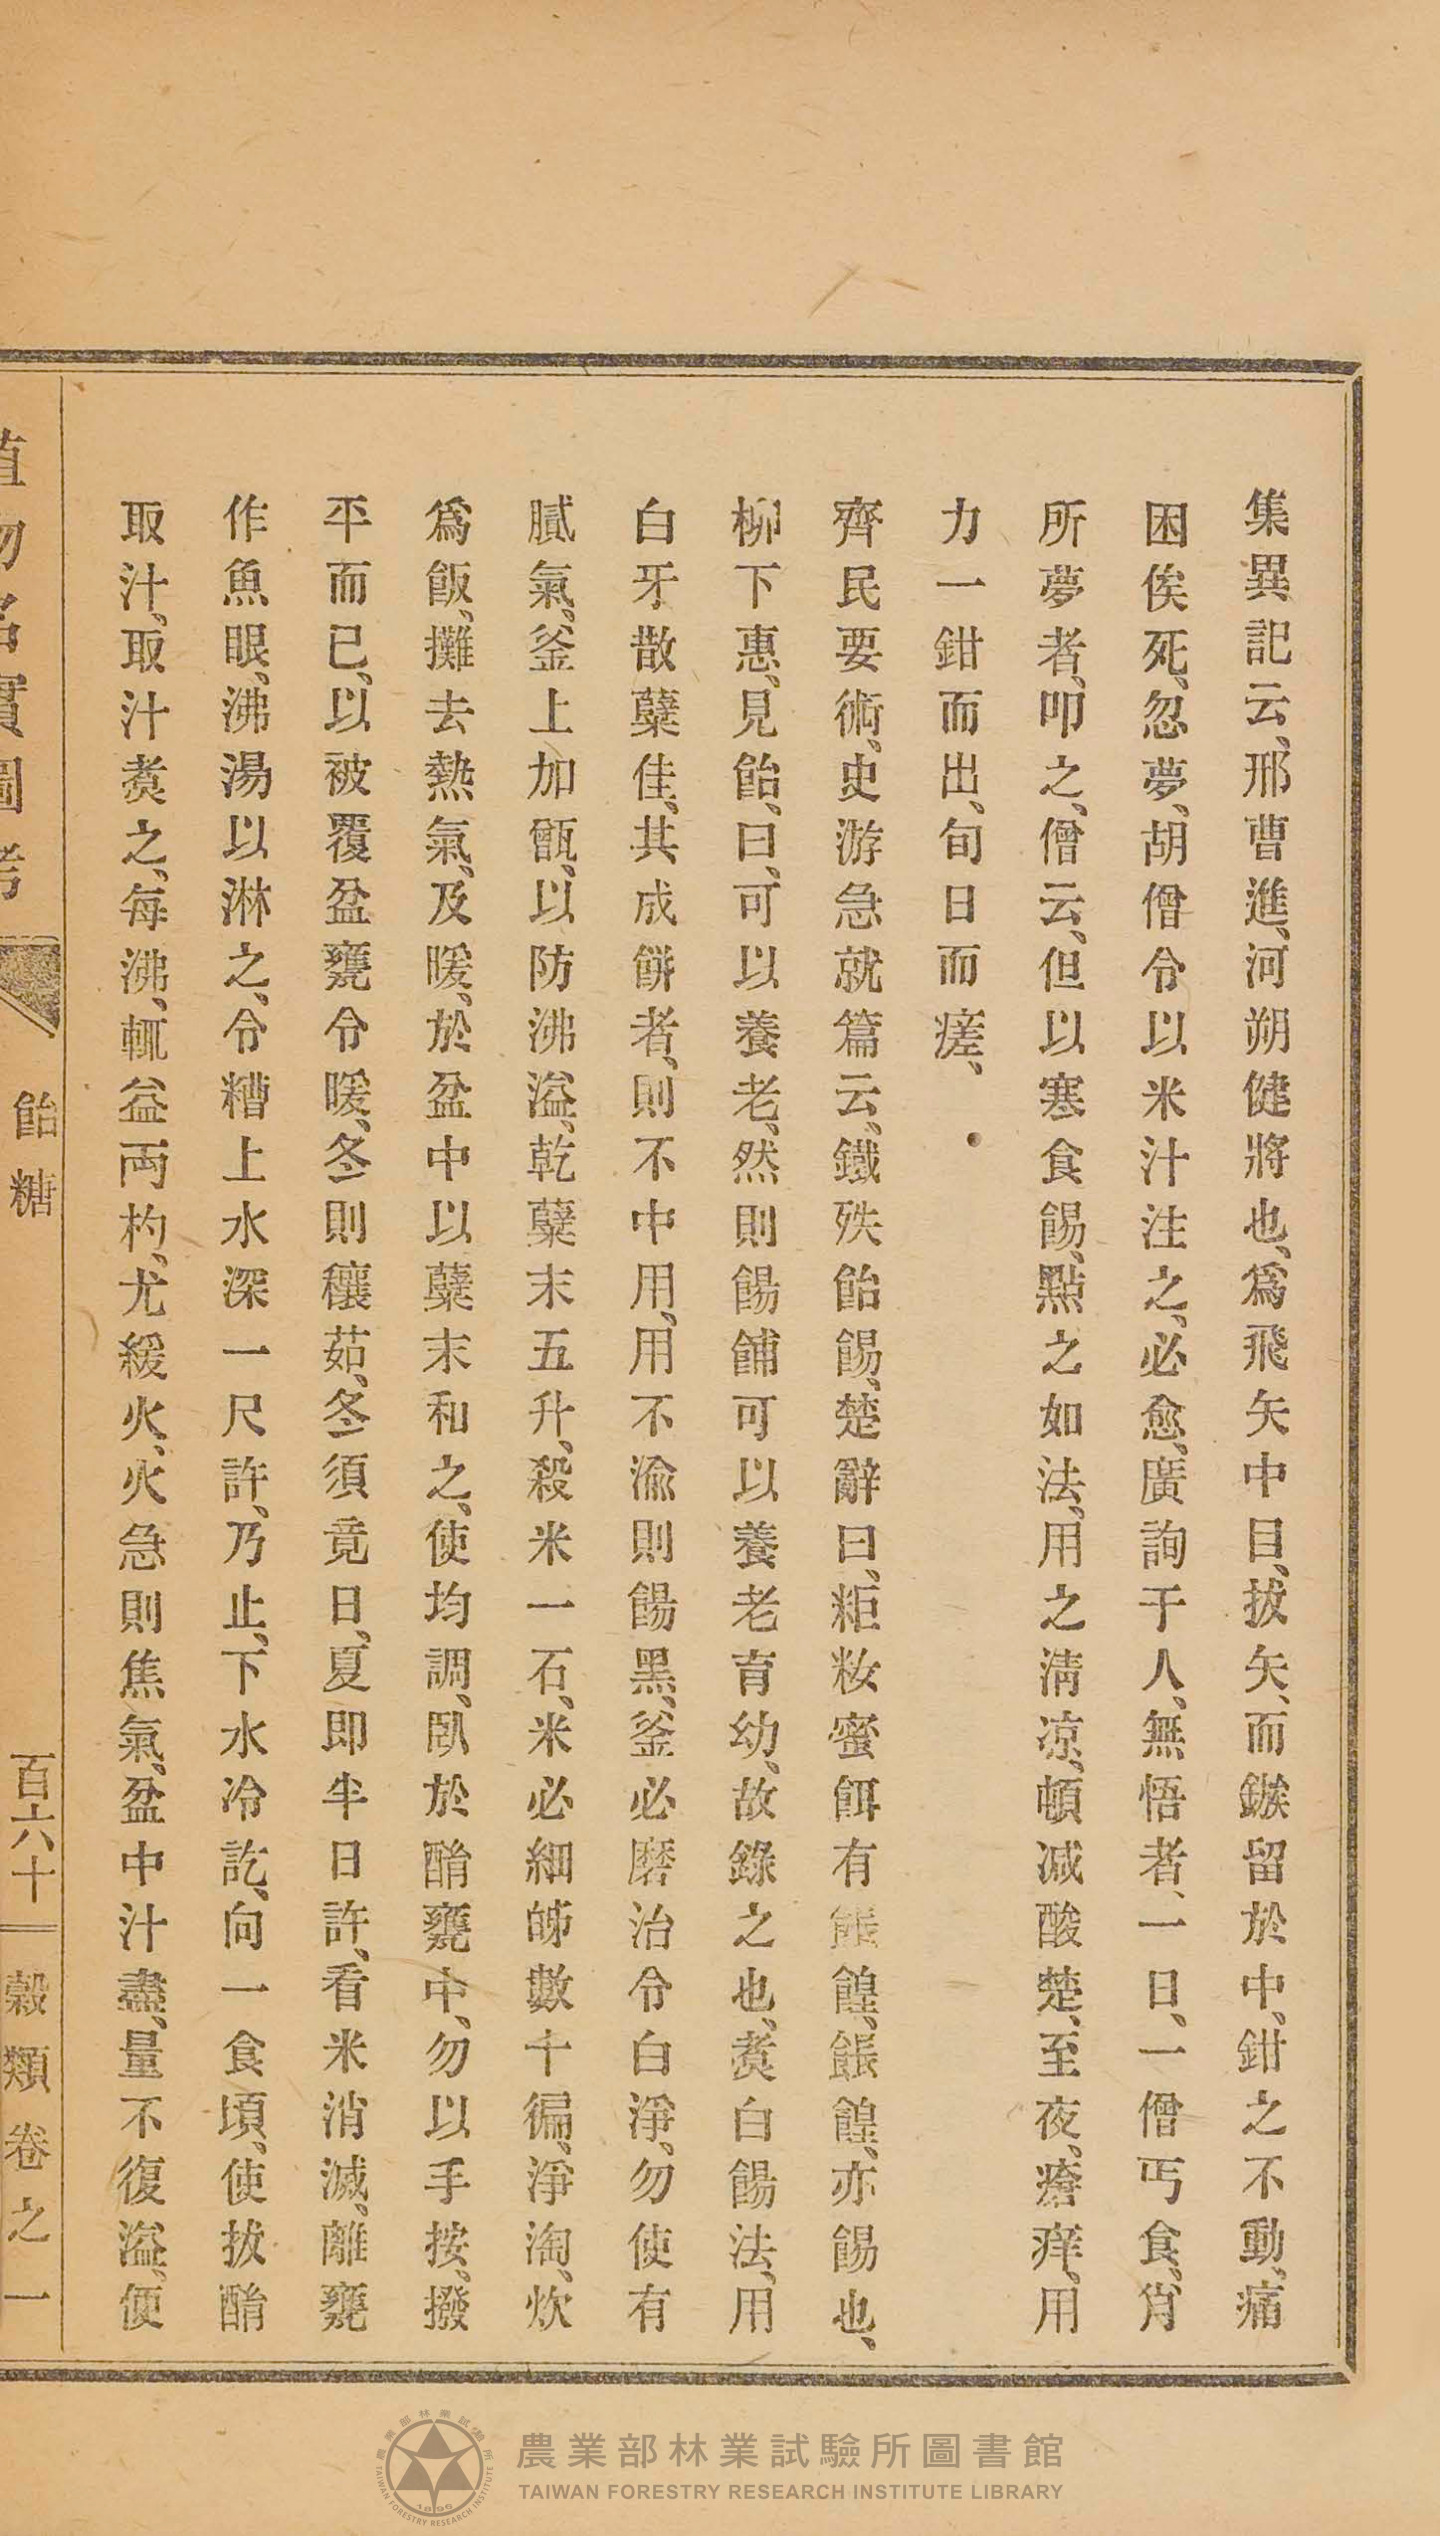 集異記云、邢曹進、河朔健將也、爲飛矢中目、拔矢、而鏃留於中、鉗之不動、痛
困俟死、忽夢、胡僧令以米汁注之、必愈、廣詢于人、無悟者、一日、一僧丐食、肖
所夢者、叩之、僧云、但以寒食餳、點之如法、用之淸凉、頓减酸楚、至夜、瘡痒、用
力一鉗而出、旬日而瘥、
齊民要術、史游急就篇云、鐵殀飴餳、楚辭曰、粔籹蜜餌有餦餭、餦餭、亦餳也、
柳下惠、見飴、曰、可以養老、然則餳餔可以養老育幼、故錄之也、煑白餳法、用
白牙散糵佳、其成餅者、則不中用、用不渝則餳黑、釜必磨治令白淨、勿使有
膩氣、釜上加甑、以防沸溢、乾糵末五升、殺米一石、米必細㫪數十徧、淨淘、炊
爲飯、攤去熱氣、及暖、於盆中以糵末和之、使均調、臥於酳甕中、勿以手按、撥
平而已、以被覆盆甕令暖、冬則穰茹、冬須竟日、夏即半日許、看米消滅、離甕
作魚眼、沸湯以淋之、令糟上水深一尺許、乃止、下水冷訖、向一食頃、使拔酳
取汁、取汁煑之、每沸、輒益兩杓、尤緩火、火急則焦氣、盆中汁盡、量不復溢、便
植物名實圖考 飴糖 百六十 穀類卷之一
農業部林業試驗所圖書館
TAIWAN FORESTRY RESEARCH INSTITUTE LIBRARY
農業部林業試驗所
TAIWAN FORESTRY RESEARCH INSTITUTE
1896